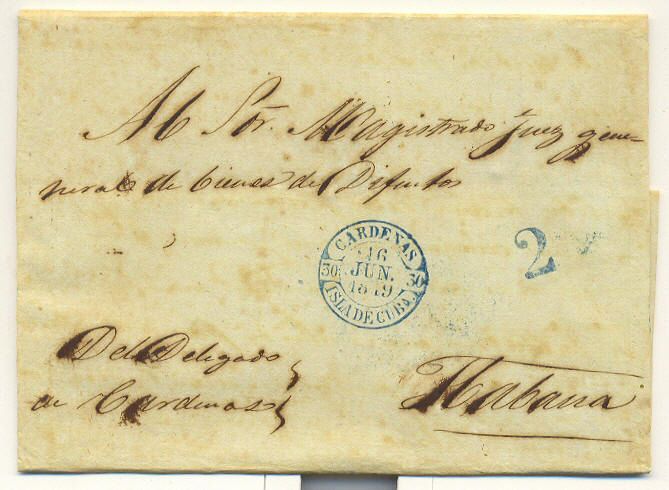 Al Sor. Magistrado Juez gene-
neral de bienes de Difuntos
CARDENAS
16
30 JUN. 30
1849
ISLA DE CUBA.
2
Del Delegado
de Cardenas
Habana